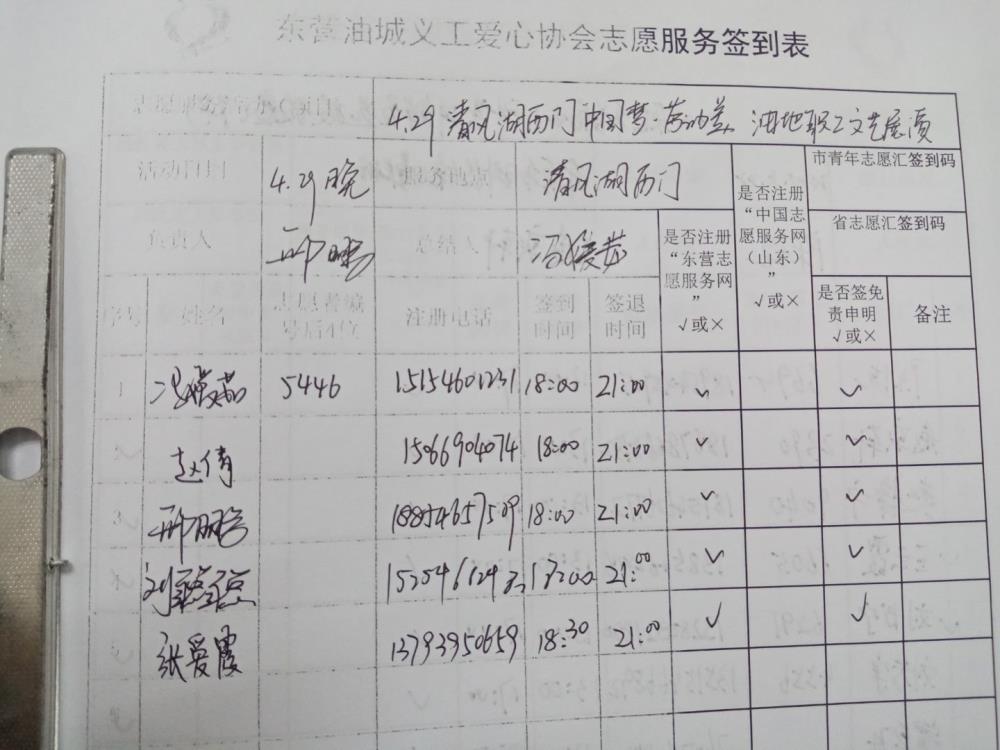 东营油城义工爱心协会志愿服务签到表
4.29 清风湖西门中国梦·劳动美 油地职工文艺展演
活动日期 4.29 晚 服务地点 清风湖西门
是否注册“中国志愿服务网（山东）” √或×
市青年志愿汇签到码
负责人 邢鹏 总结人
是否注册“东营志愿服务网” √或×
省志愿汇签到码
序号 姓名 志愿者编号后4位 注册电话 签到时间 签退时间 是否签免责申明 √或× 备注
1 5446 15154601231 18:00 21:00 ✓ ✓
2 赵倩 15066904074 18:00 21:00 ✓ ✓
3 邢鹏 18:00 21:00 ✓ ✓
4 21:00 ✓ ✓
5 张爱霞 13793950659 18:30 21:00 ✓ ✓